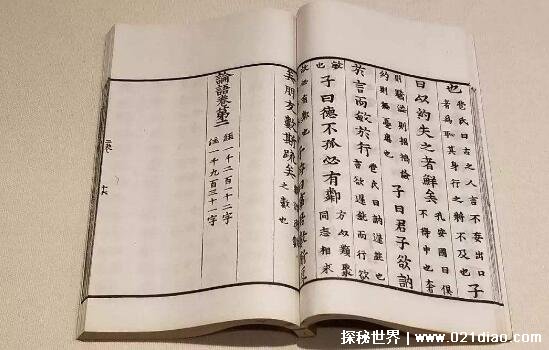 也 苞氏曰古之人言不妄出口
者為恥其身行之將不及也 子
曰以約失之者鮮矣 孔安國曰俱
不得中也奢
約則無憂患也 子曰君子欲訥
於言而敏於行 苞氏曰訥遲鈍也
言欲遲鈍而行欲
敏
也 子曰德不孤必有鄰 方以類聚
同志相求
矣朋友數斯疏矣 之數也
論語卷第二
一千二百一十二字
注一千九百三十一字
探秘世界 www.021diao.com